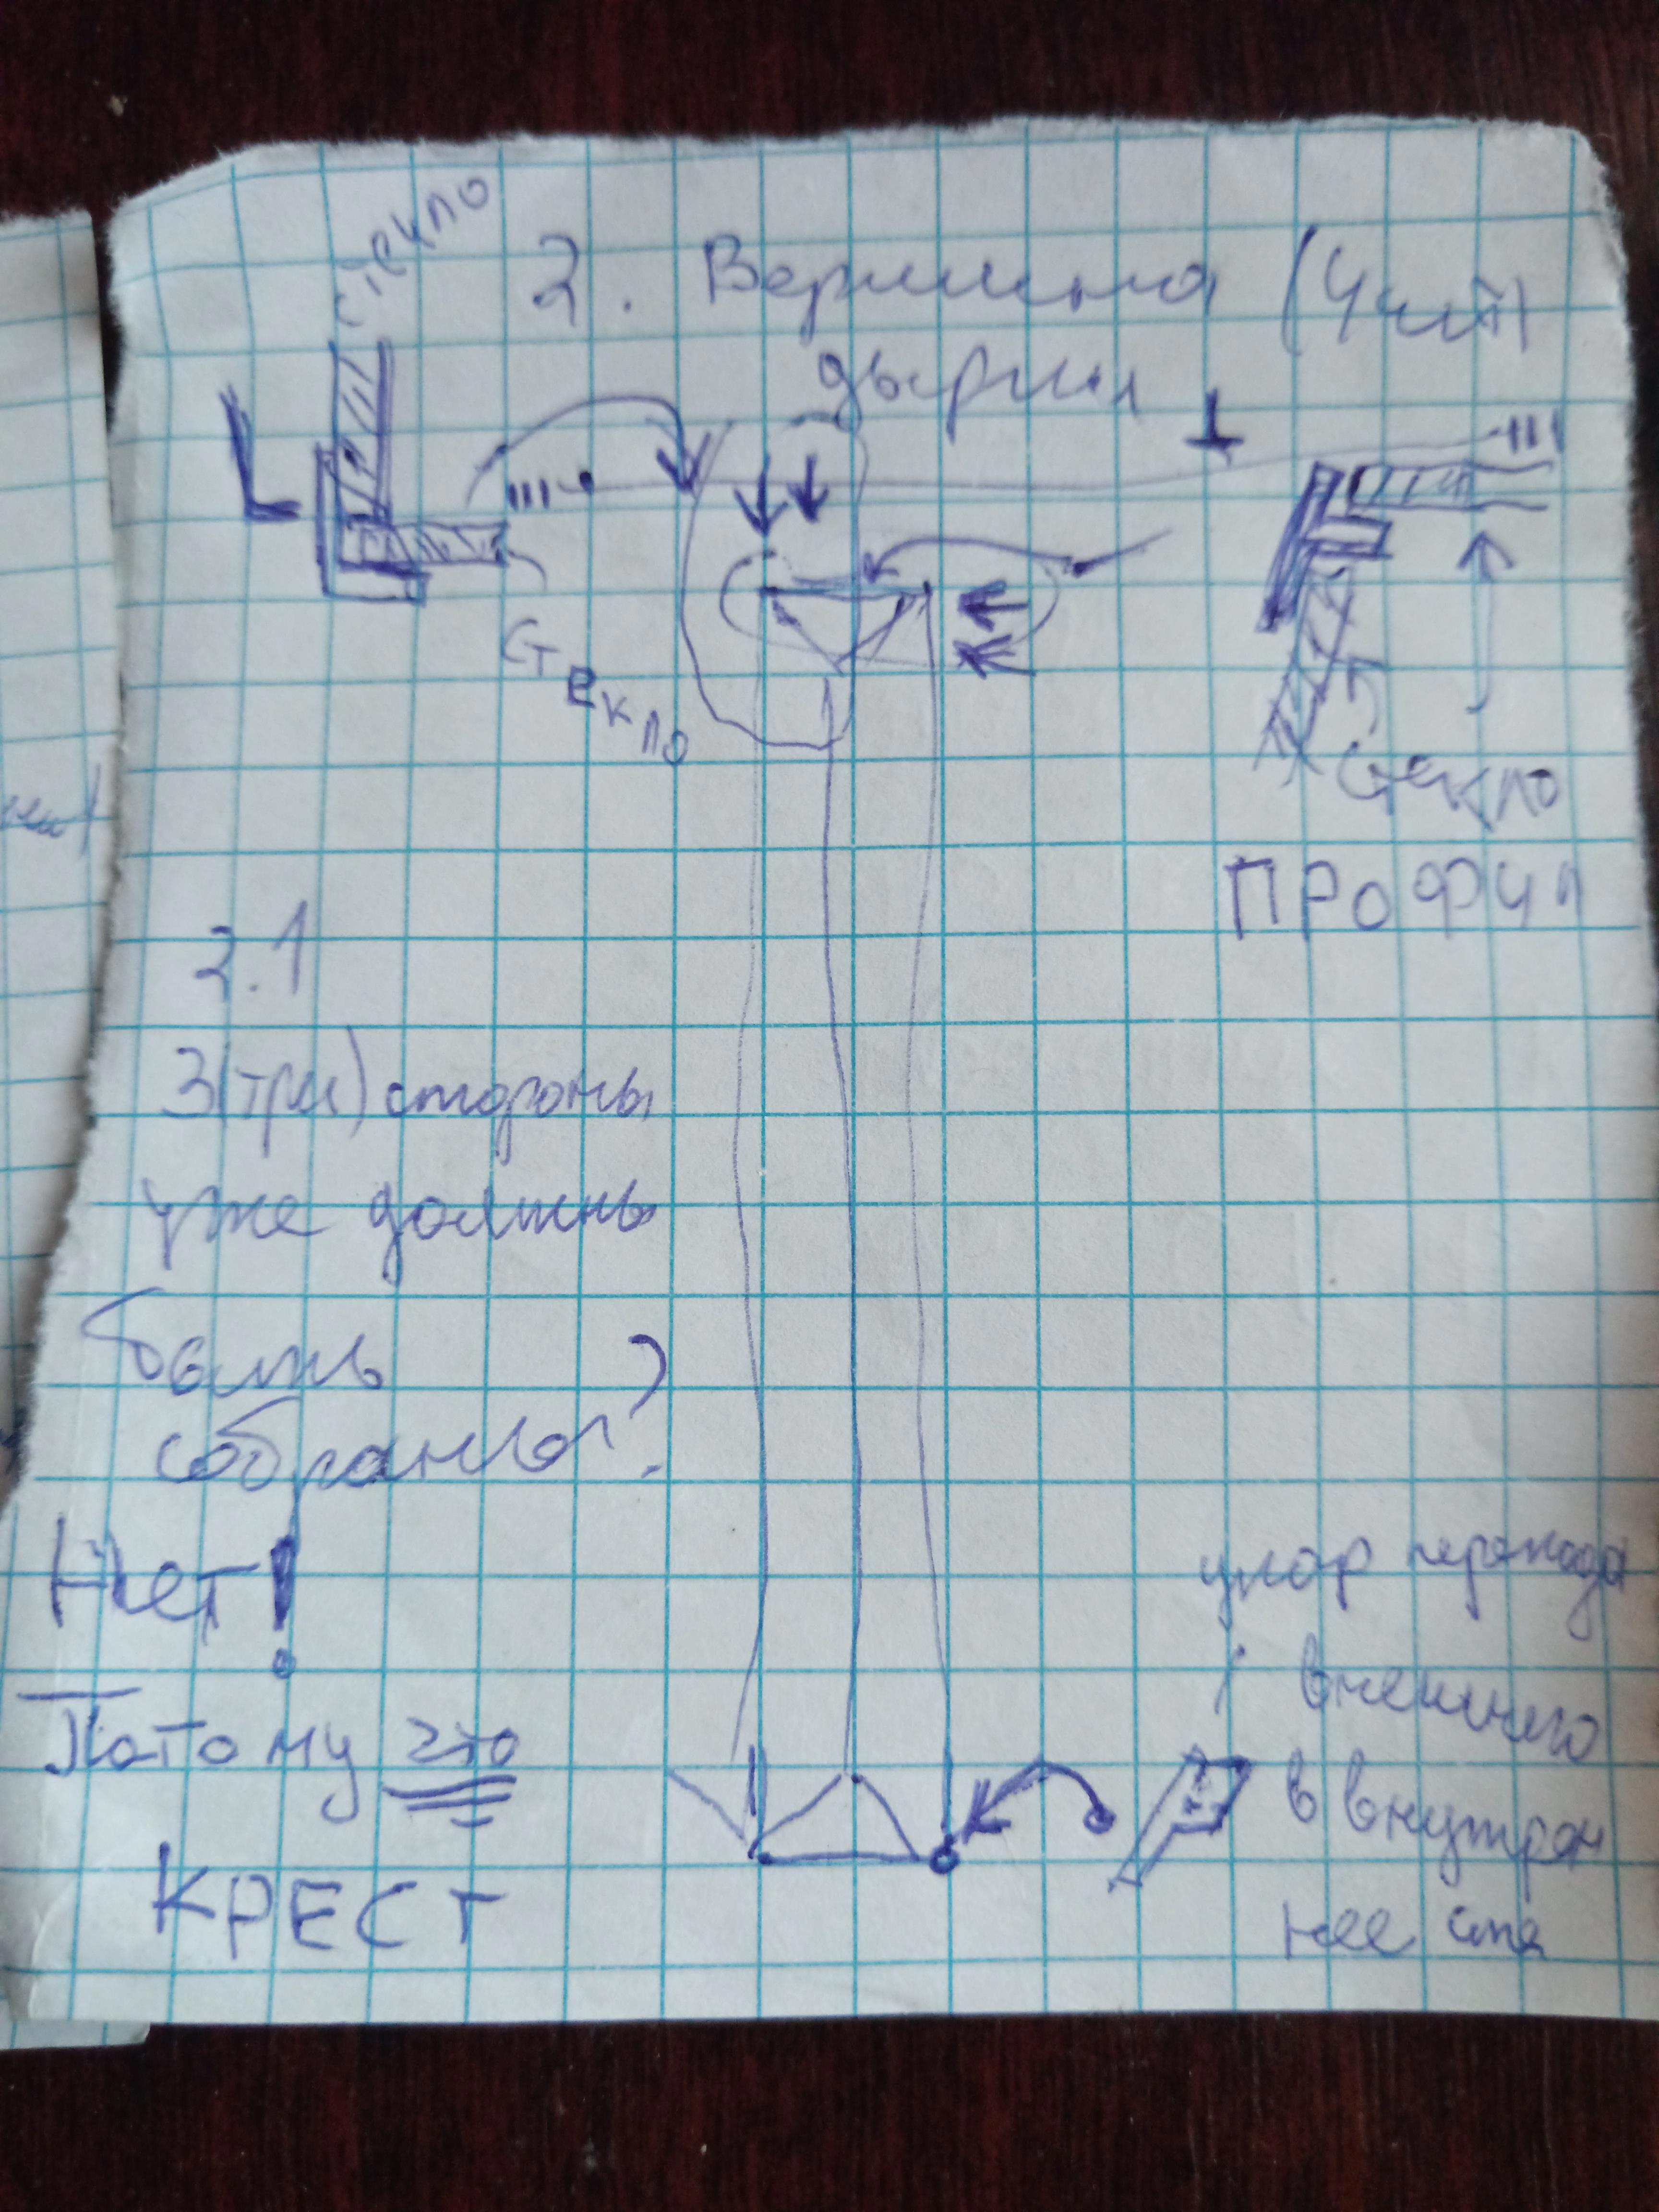 стекло
2. Вершина (4 шт)
дырки
стекло
стекло
ПРОФИЛ
2.1
3(три) стороны
уже должны
быть
собраны?
Нет!
Потому что
КРЕСТ
упор перехода
внешнего
в внутрен
нее